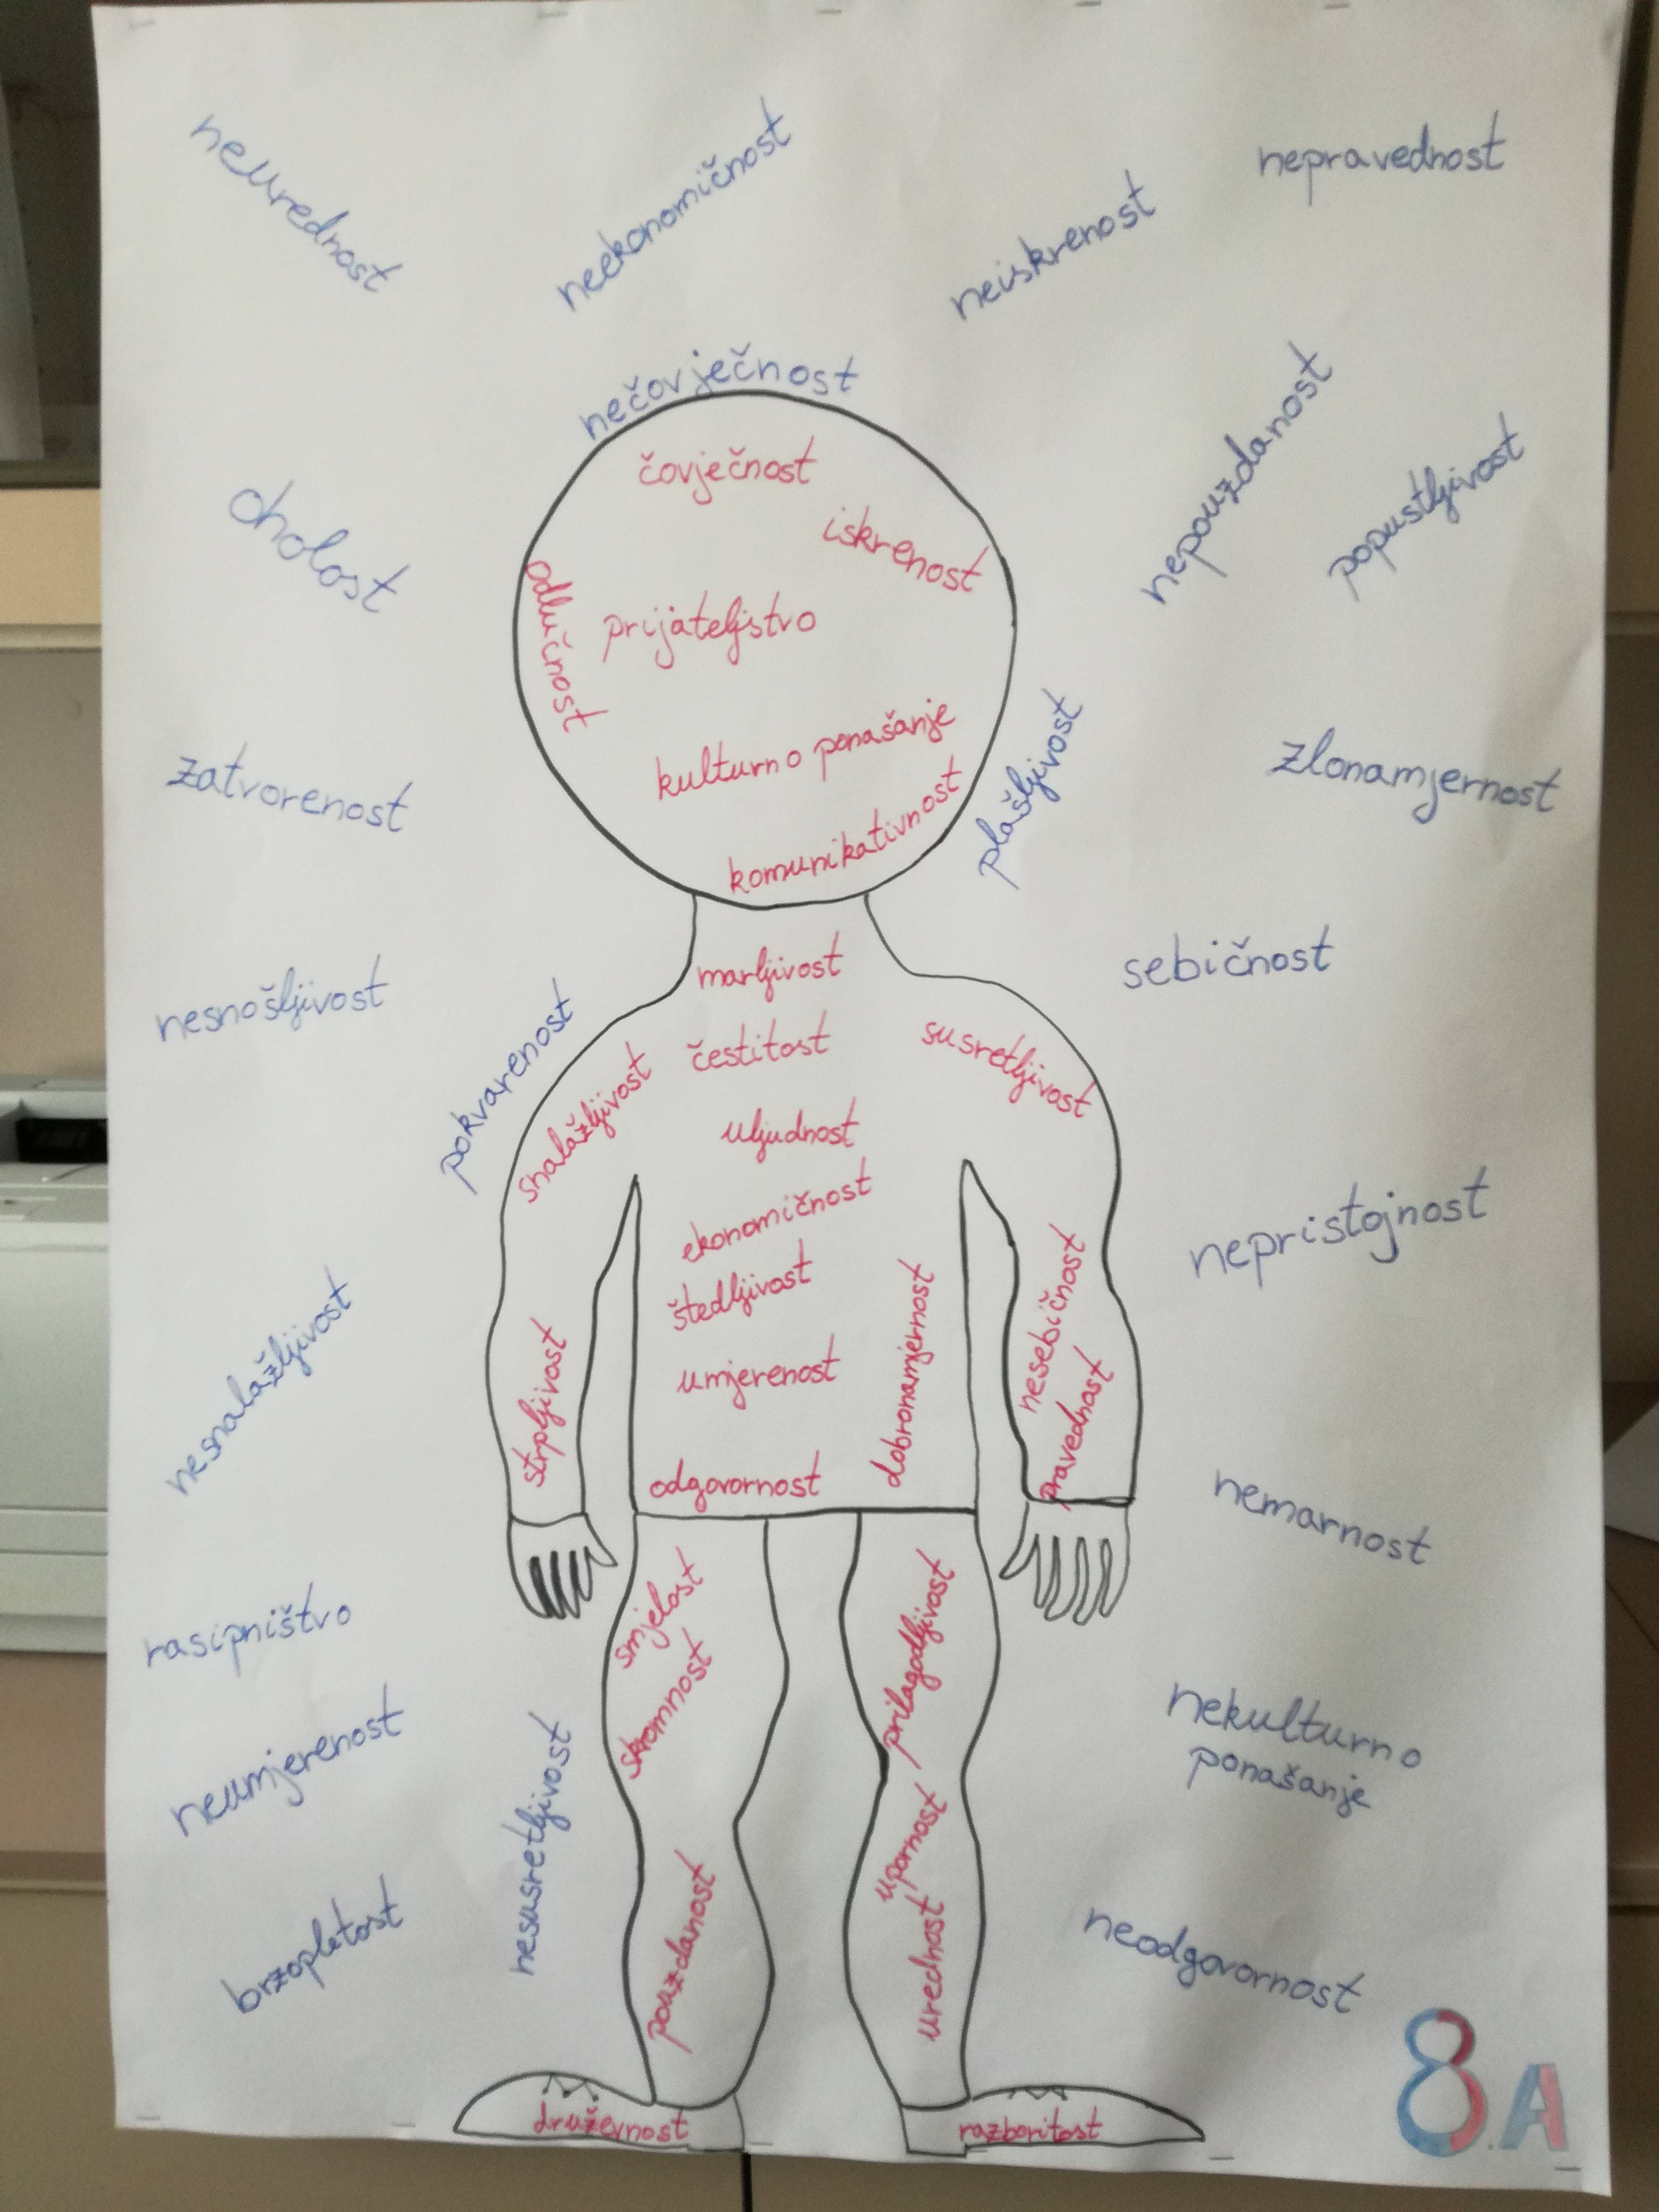 neurednost
neekonomičnost
neiskrenost
nepravednost
nečovječnost
čovječnost
iskrenost
odlučnost
prijateljstvo
kulturno ponašanje
komunikativnost
oholost
nepouzdanost
popustljivost
zatvorenost
plašljivost
zlonamjernost
nesnošljivost
pokvarenost
sebičnost
marljivost
čestitost
susretljivost
snalažljivost
uljudnost
ekonomičnost
štedljivost
umjerenost
dobronamjernost
nesebičnost
pravednost
strpljivost
odgovornost
nepristojnost
nesnalažljivost
nemarnost
rasipništvo
smjelost
skromnost
prilagodljivost
nekulturno
ponašanje
neumjerenost
nesusretljivost
upornost
urednost
pouzdanost
brzopletost
neodgovornost
druževnost
razboritost
8.A